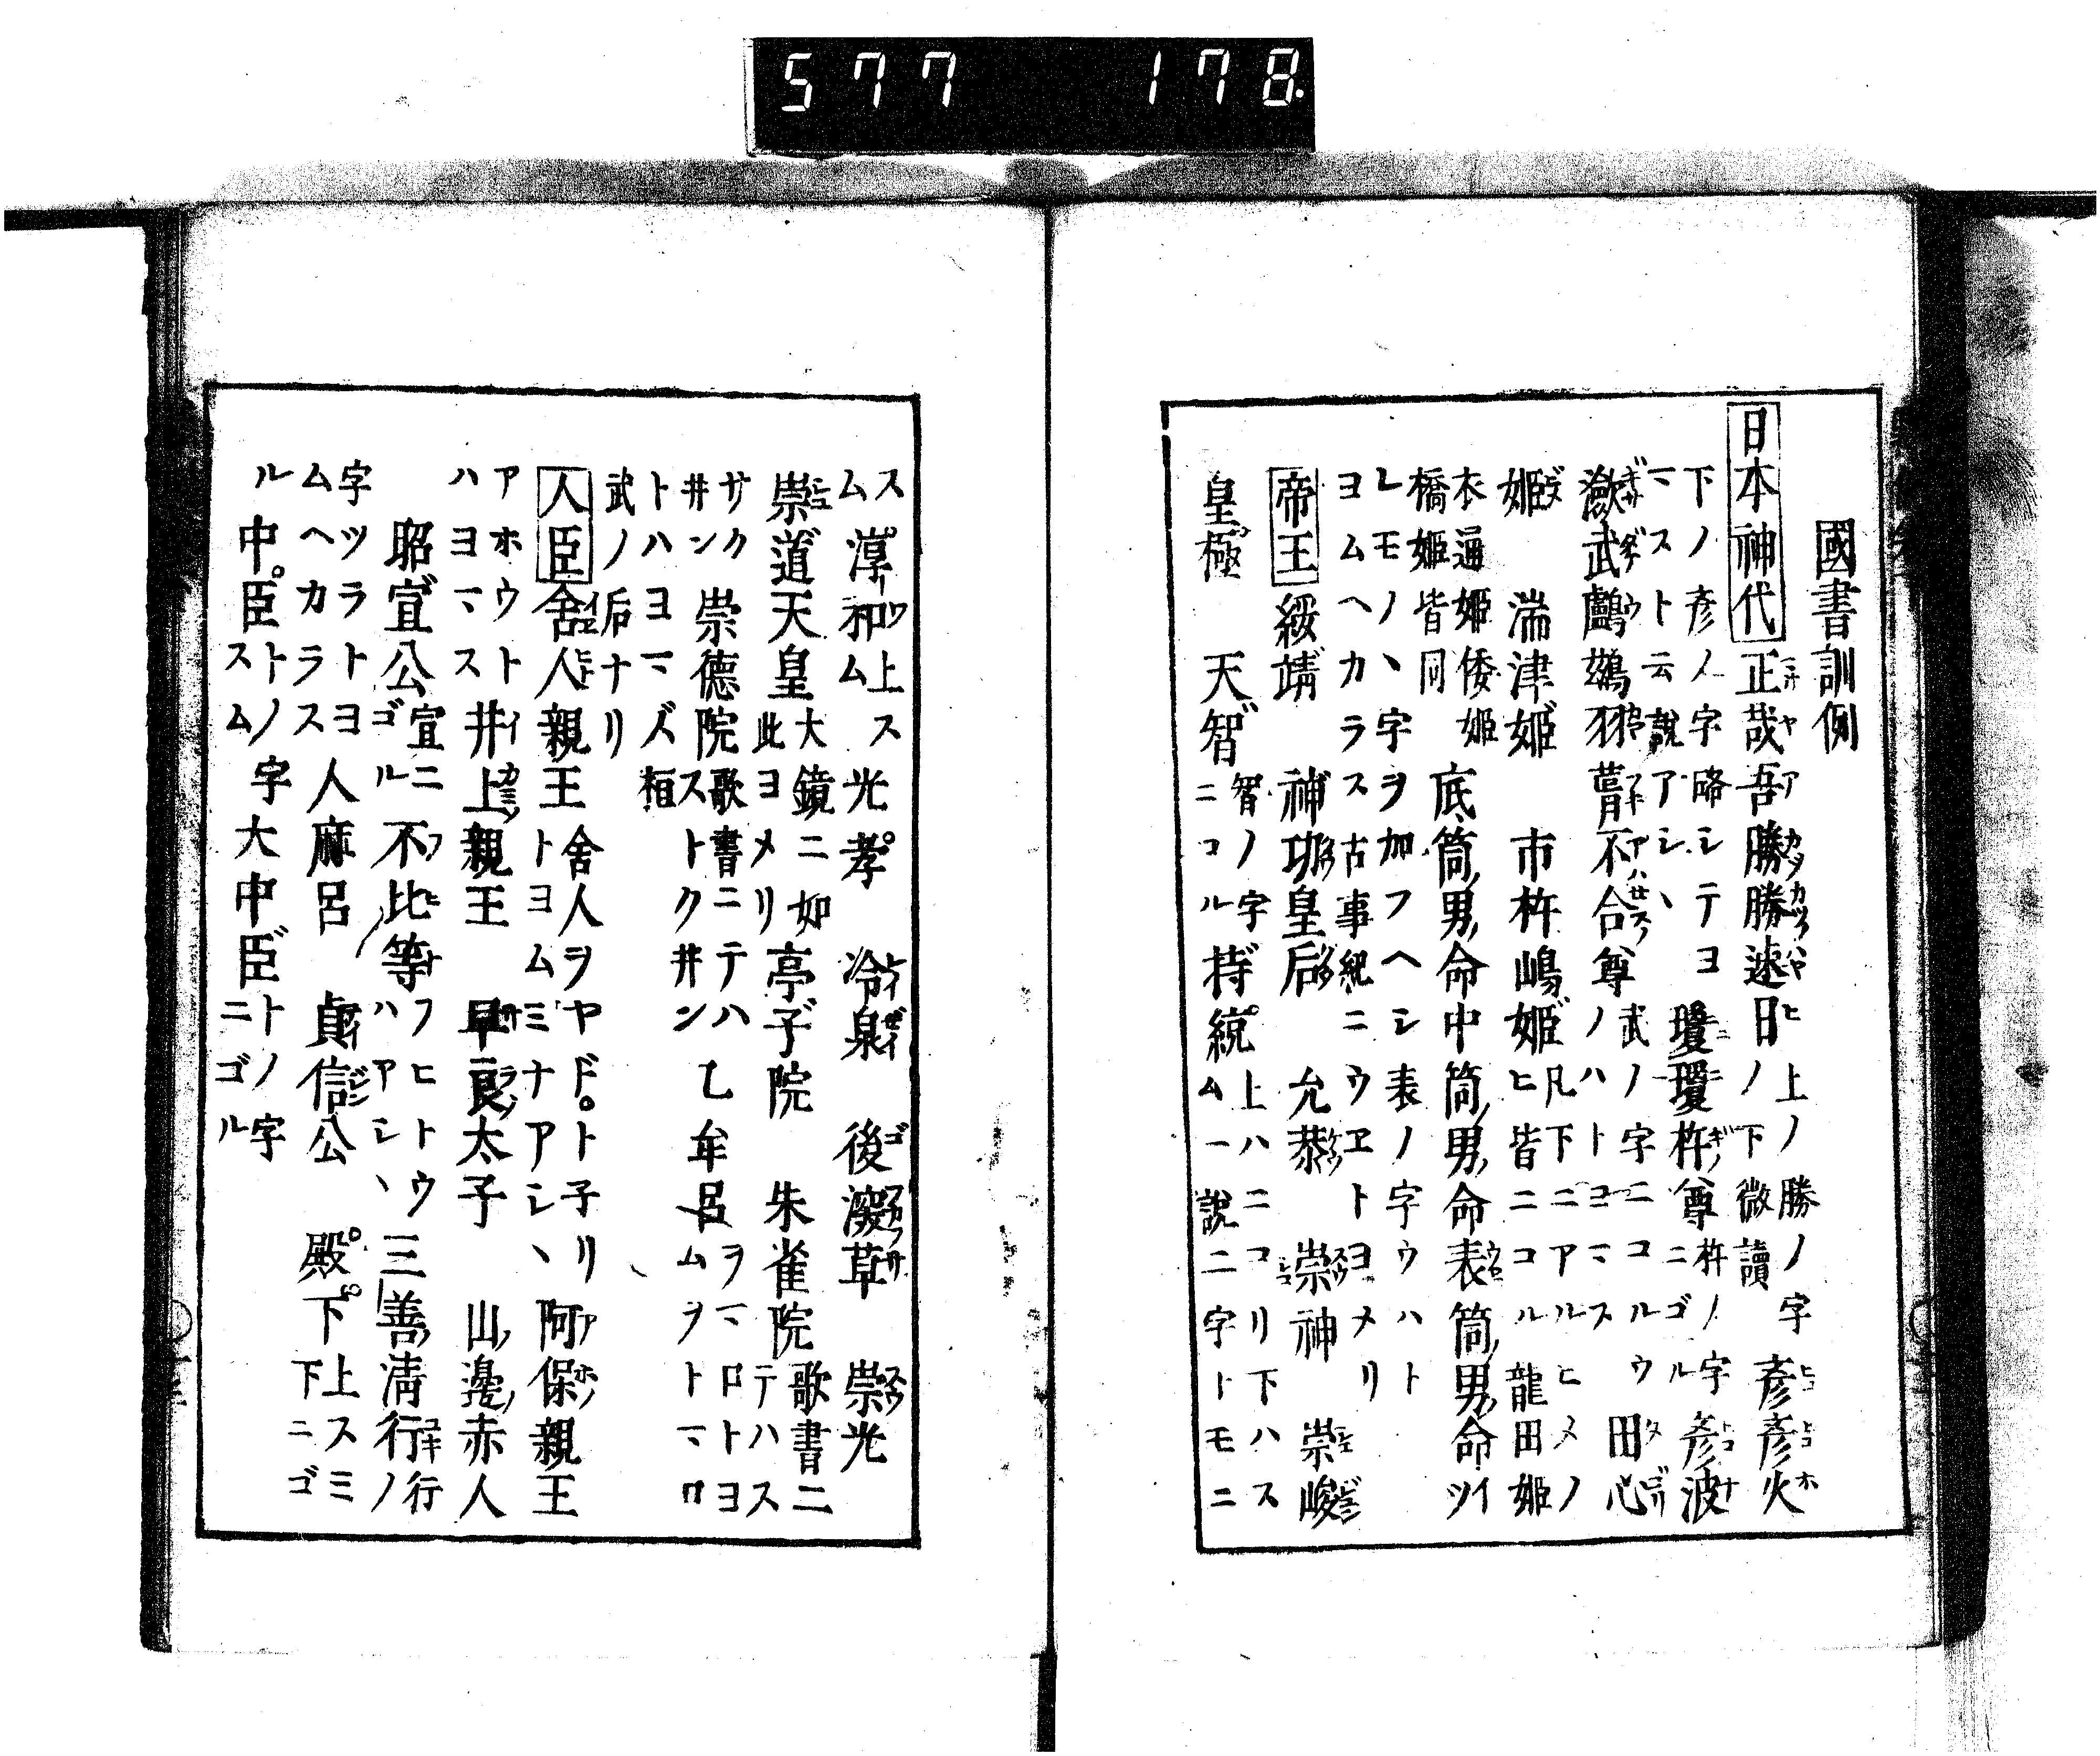 577 178
國書訓例
日本神代 正哉吾勝勝速日 上ノ勝ノ字ノ下微讀 彦彦火
下ノ彦ノ字略シテヨマストモ云説アシヽ 瓊瓊杵尊 杵ノ字ニゴル 彦波
瀲武鸕鷀羽葺不合尊 武ノ字ニコルウノハトヨマス 田心
姫 湍津姫 市杵嶋姫 凡下ニアルヒメノヒ皆ニコル 龍田姫
衣通姫倭姫橋姫皆同 底筒男命中筒男命表筒男命 イツ
レモノヽ字ヲ加フヘシ表ノ字ウハトヨムヘカラス古事紀ニウヱトヨメリ
帝王 綏靖 神功皇后 允恭 崇神 崇峻
皇極 天智 智ノ字ニコル 持統 上ハニコリ下ハスム一説二字トモニ
スム 淳和 上スム 光孝 冷泉 後深草 崇光
崇道天皇 大鏡ニ如此ヨメリ 亭子院 朱雀院 歌書ニテハス
サクヰン 崇德院 歌書ニテハストクヰン 乙牟呂 ヲマロトヨムヲトマロ
トハヨマズ桓武ノ后ナリ
人臣 舍人親王 舍人ヲヤドトネリトヨムミナアシヽ 阿保親王
アホウトハヨマス 井上親王 早良太子 山邊赤人
昭宣公 宣ニゴル 不比等 フヒトウハアシヽ 三善清行 行ノ
字ツラトヨムヘカラス 人麻呂 貞信公 殿下 上スミ下ニゴ
ル 中臣 トノ字スム 大中臣 トノ字ニゴル